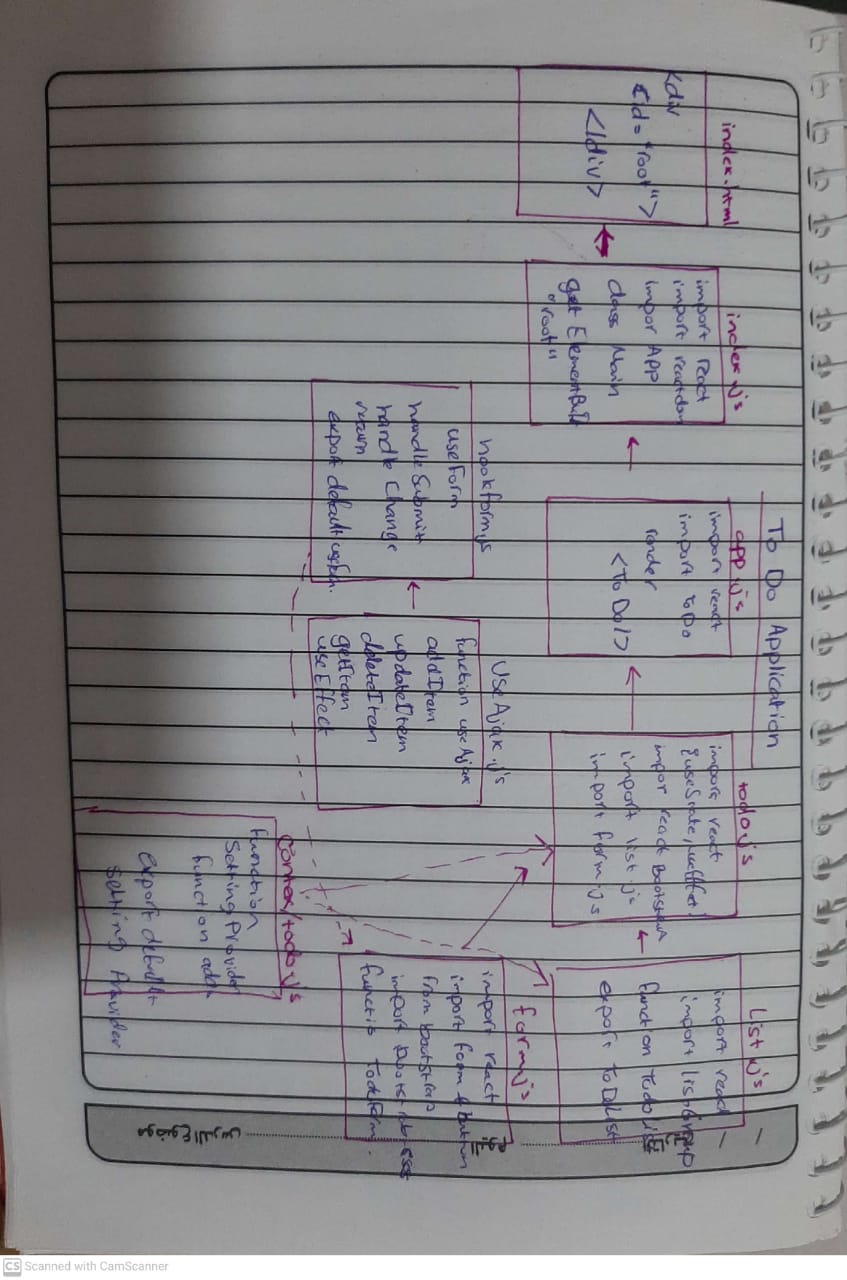 To Do Application
index.html
<div
id="root">
</div>
index.js
import react
import reactdom
impor App
class Main
get Element
"root"
app.js
import react
import ToDo
render
<To Do/>
todo.js
import react
impor react Bootstrap
import list js
import form.js
List js
import react
import listGroup
function Todo list
export ToDoList
hookform.js
useForm
handleSubmit
handle Change
return
export default useForm.
UseAjax.js
function useAjax
addItem
updateItem
deleteItem
getItem
useEffect
form.js
import react
import form & button
from bootstrap
import
function TodoForm.
Contex/todo.js
function
Setting Provider
function add
export default
Setting Provider
موضوع الدرس
CS Scanned with CamScanner